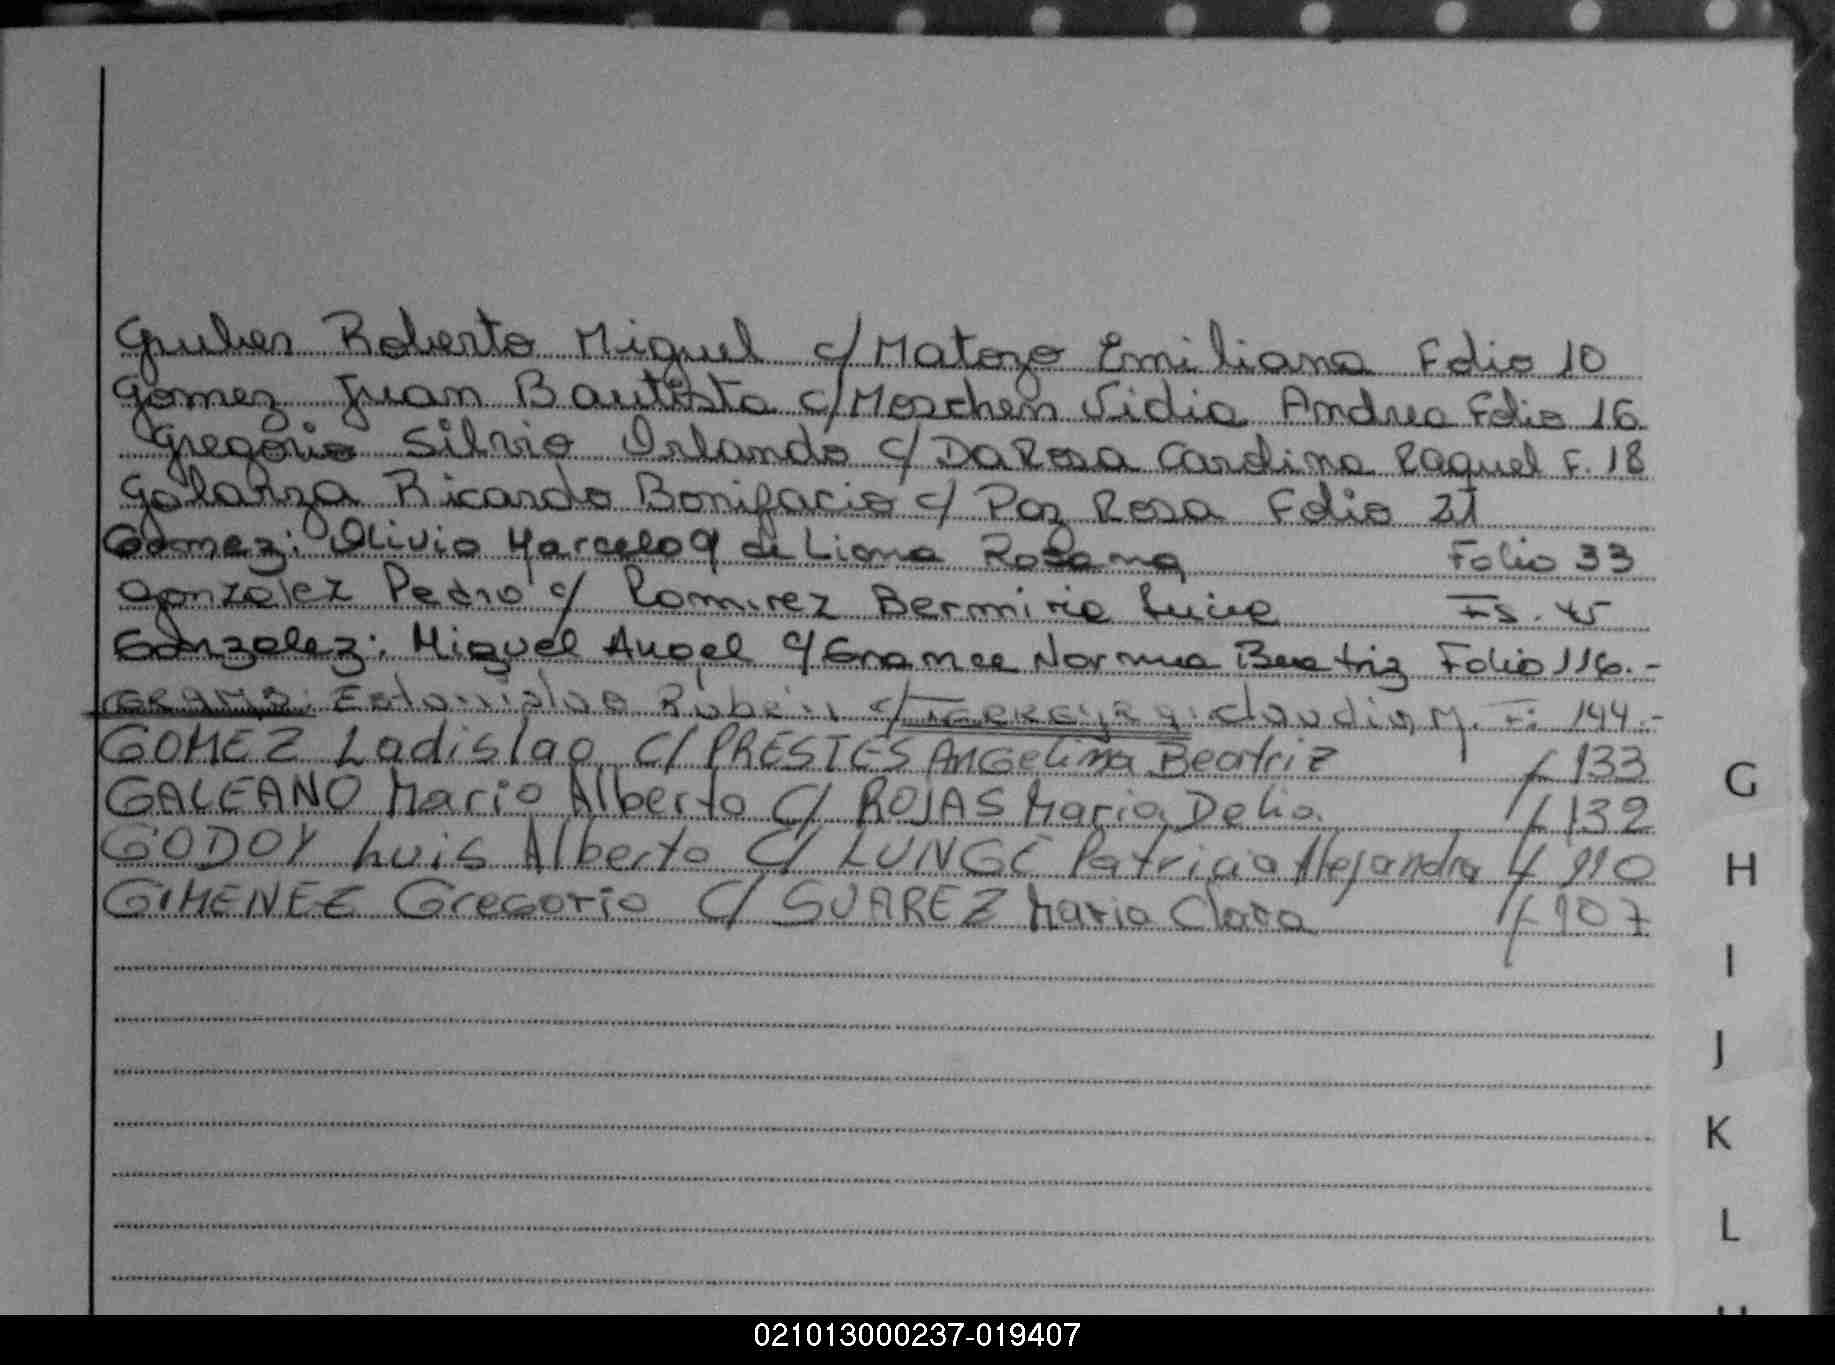 Gruber Roberto Miguel c/ Matozo Emiliana Folio 10
Gomez Juan Bautista c/ Moschen Nidia Andrea Folio 16
Gregorio Silvio Orlando c/ Da Rosa Cardina Raquel F. 18
Galarza Ricardo Bonifacio c/ Paz Rosa Folio 21
Gomez: Olivio Marcelo c/ de Lima Rosana Folio 33
Gonzalez Pedro c/ Ramirez Bermirie Fs.
Gonzalez: Miguel Angel c/ Norma Beatriz Folio 116.-
Estanislao Rubén c/ Claudia M. F: 144.-
GOMEZ Ladislao C/ PRESTES Angelina Beatriz f 133
GALEANO Mario Alberto C/ ROJAS Maria Delia f 132
GODOY Luis Alberto C/ LUNGE Patricia Alejandra f 110
GIMENEZ Gregorio C/ SUAREZ Maria Clara f 107
G
H
I
J
K
L
021013000237-019407